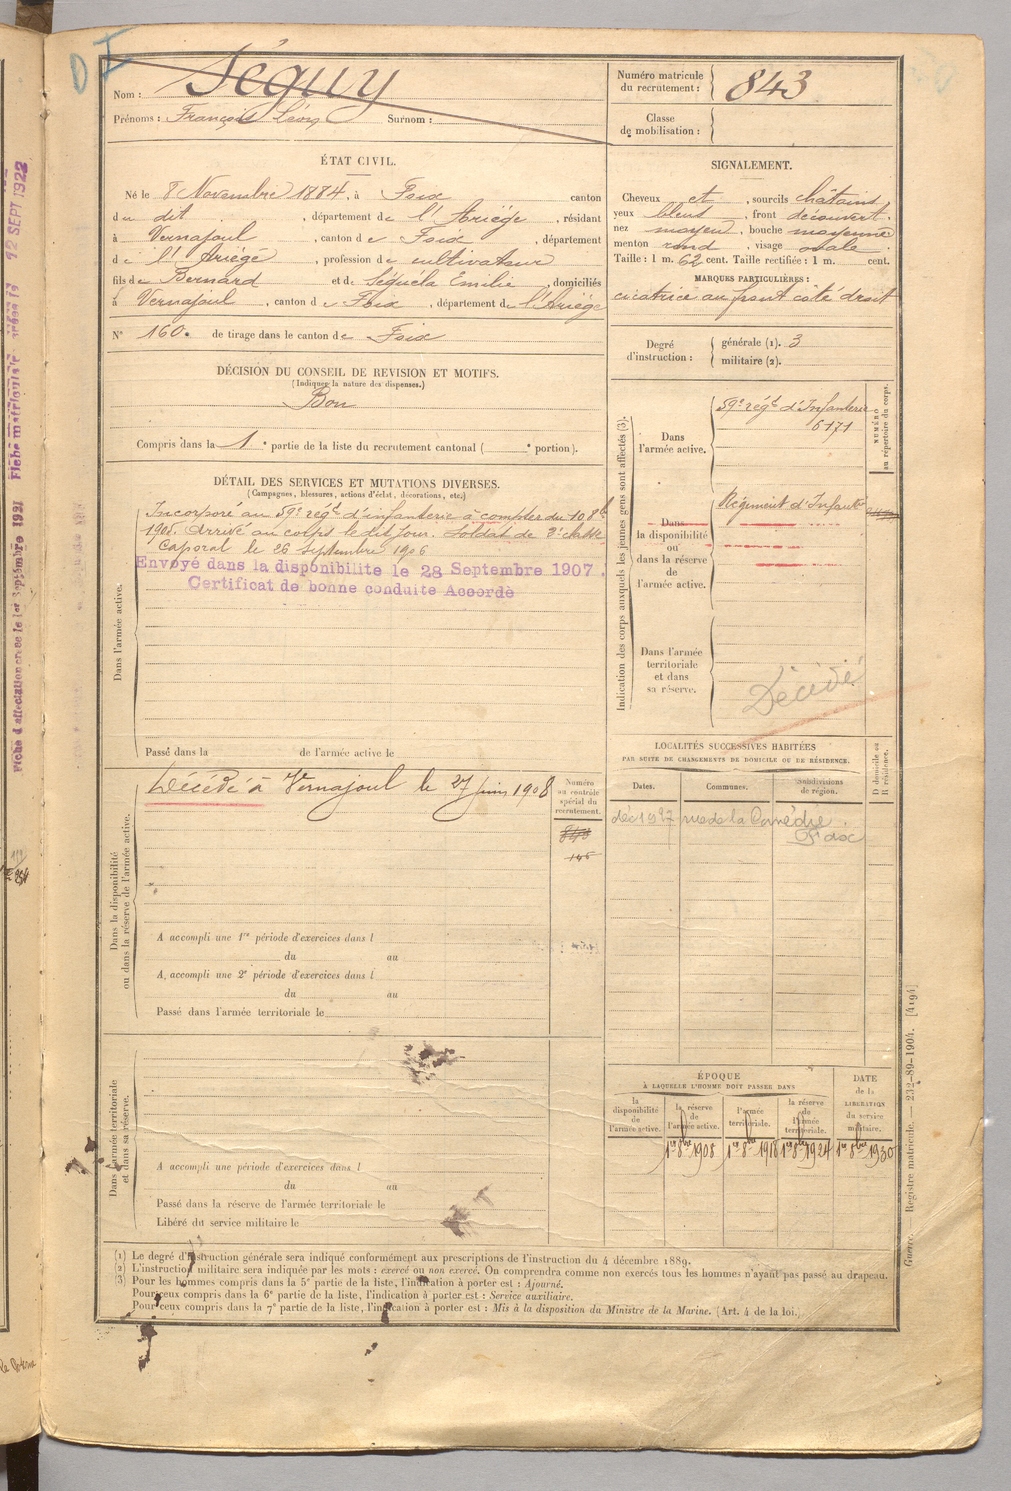 D I
Nom : Séguy
Prénoms : François Léon Surnom :
Numéro matricule du recrutement : 843
Classe de mobilisation :
ÉTAT CIVIL.
Né le 8 Novembre 1884, à Foix canton
du dit , département de l'Ariége , résidant
à Vernajoul , canton de Foix , département
de l'Ariége , profession de cultivateur
fils de Bernard et de Séguéla Emilie , domiciliés
à Vernajoul , canton de Foix , département de l'Ariége
N° 160. de tirage dans le canton de Foix
SIGNALEMENT.
Cheveux et , sourcils châtains
yeux bleus , front découvert.
nez moyen , bouche moyenne
menton rond , visage ovale
Taille : 1 m. 62 cent. Taille rectifiée : 1 m. cent.
MARQUES PARTICULIÈRES :
cicatrice au front côté droit
Degré d'instruction : générale (1). 3
militaire (2).
DÉCISION DU CONSEIL DE REVISION ET MOTIFS.
(Indiquer la nature des dispenses.)
Bon
Compris dans la 1e partie de la liste du recrutement cantonal ( e portion).
DÉTAIL DES SERVICES ET MUTATIONS DIVERSES.
(Campagnes, blessures, actions d'éclat, décorations, etc.)
Dans l'armée active.
Incorporé au 59e régt d'infanterie à compter du 10 8bre
1905. Arrivé au corps le dit jour. Soldat de 2e classe
Caporal le 26 Septembre 1906
Envoyé dans la disponibilite le 28 Septembre 1907.
Certificat de bonne conduite Accordé
Passé dans la de l'armée active le
Indication des corps auxquels les jeunes gens sont affectés (3).
NUMÉRO au répertoire du corps.
Dans l'armée active.
59e régt d'Infanterie
6171
Dans la disponibilité ou dans la réserve de l'armée active.
Régiment d'Infanterie
Dans l'armée territoriale et dans sa réserve.
Décédé
LOCALITÉS SUCCESSIVES HABITÉES
PAR SUITE DE CHANGEMENTS DE DOMICILE OU DE RÉSIDENCE.
D domicile ou R résidence.
Dates. Communes. Subdivisions de région.
rue de la
Foix
Dans la disponibilité ou dans la réserve de l'armée active.
Décédé à Vernajoul le 27 juin 1908
Numéro au contrôle spécial du recrutement.
843
A accompli une 1re période d'exercices dans l
du au
A accompli une 2e période d'exercices dans l
du au
Passé dans l'armée territoriale le
Dans l'armée territoriale et dans sa réserve.
A accompli une période d'exercices dans l
du au
Passé dans la réserve de l'armée territoriale le
Libéré du service militaire le
ÉPOQUE
À LAQUELLE L'HOMME DOIT PASSER DANS
la disponibilité de l'armée active.
la réserve de l'armée active.
l'armée territoriale.
la réserve de l'armée territoriale.
DATE de la LIBÉRATION du service militaire.
1er 8bre 1908 1er 8bre 1918 1er 8bre 1924 1er 8bre 1930
(1) Le degré d'instruction générale sera indiqué conformément aux prescriptions de l'instruction du 4 décembre 1889.
(2) L'instruction militaire sera indiquée par les mots : exercé ou non exercé. On comprendra comme non exercés tous les hommes n'ayant pas passé au drapeau.
(3) Pour les hommes compris dans la 5e partie de la liste, l'indication à porter est : Ajourné.
Pour ceux compris dans la 6e partie de la liste, l'indication à porter est : Service auxiliaire.
Pour ceux compris dans la 7e partie de la liste, l'indication à porter est : Mis à la disposition du Ministre de la Marine. (Art. 4 de la loi.)
Guerre. Registre matricule. — 232-89-1904. [4194]
Fiche d'affectation créée le 1er Septembre 1921
Fiche matriculaire créée le 12 SEPT 1922